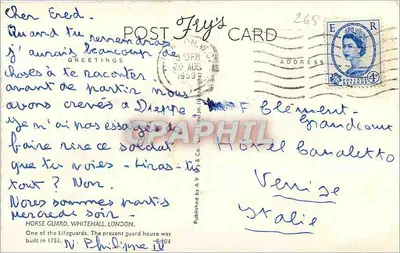 Cher Fred.
POST Fry's CARD
268
Quand tu reviendras
j'aurais beaucoup de
choses à te raconter.
GREETINGS
ADDRESS
avant de partir nous
avons crevés à Dieppe
je m'ai pas essayé de
faire rire ce soldat
que tu vois - Liras-tu
tout ? Non.
Nous sommes partis
mercredi soir -
N. Philippe IV
5 PM
20 AUG
1959
E R
POSTAGE REVENUE
4D
F Clément-
Grandcourt
Hôtel Canaletto
Venise
Italie
DELCAMPE
Published by A.V. Fry & Co.
HORSE GUARD, WHITEHALL, LONDON.
One of the Lifeguards. The present guard house was
built in 1753.